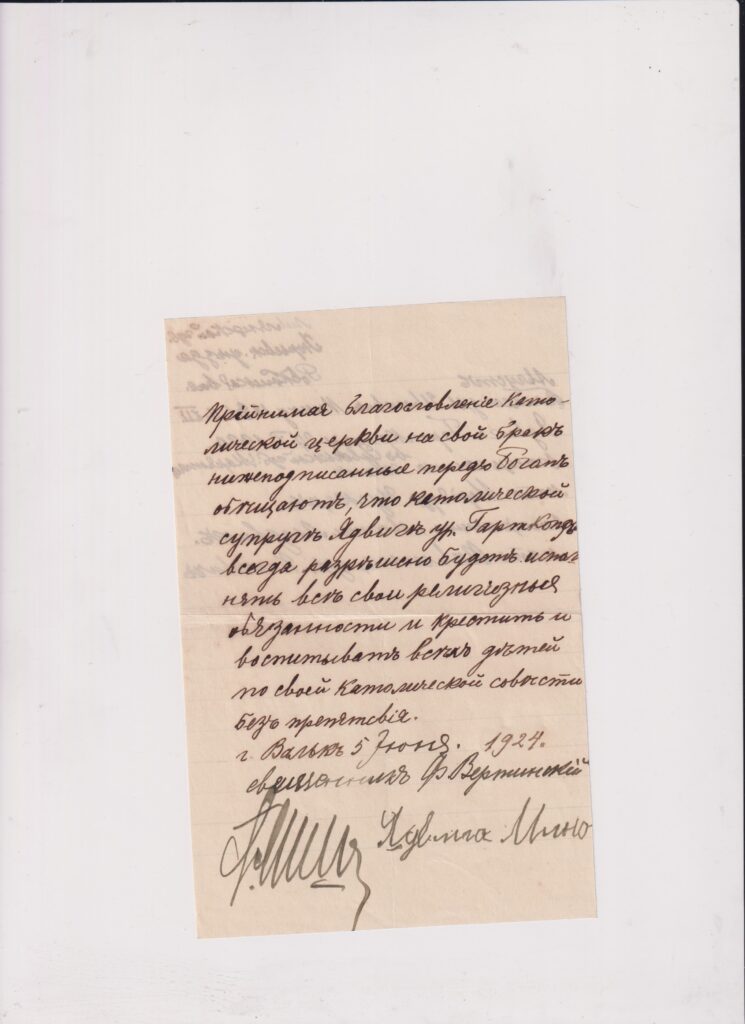 Прійнимая благословленіе Като-
лической церкви на свой бракъ
нижеподписанные передъ Богамъ
обѣщаютъ, что католической
супругѣ Ядвигѣ ур. Гарткопфъ
всегда разрѣшено будетъ испол-
нять всѣ свои религіозныя
обязанности и крестить и
воспитывать всѣхъ дѣтей
по своей Католической совѣсти
безъ препятсвія.
г. Валкъ 5 Іюня. 1924.
священникъ Ф Вертинскій
Ядвига